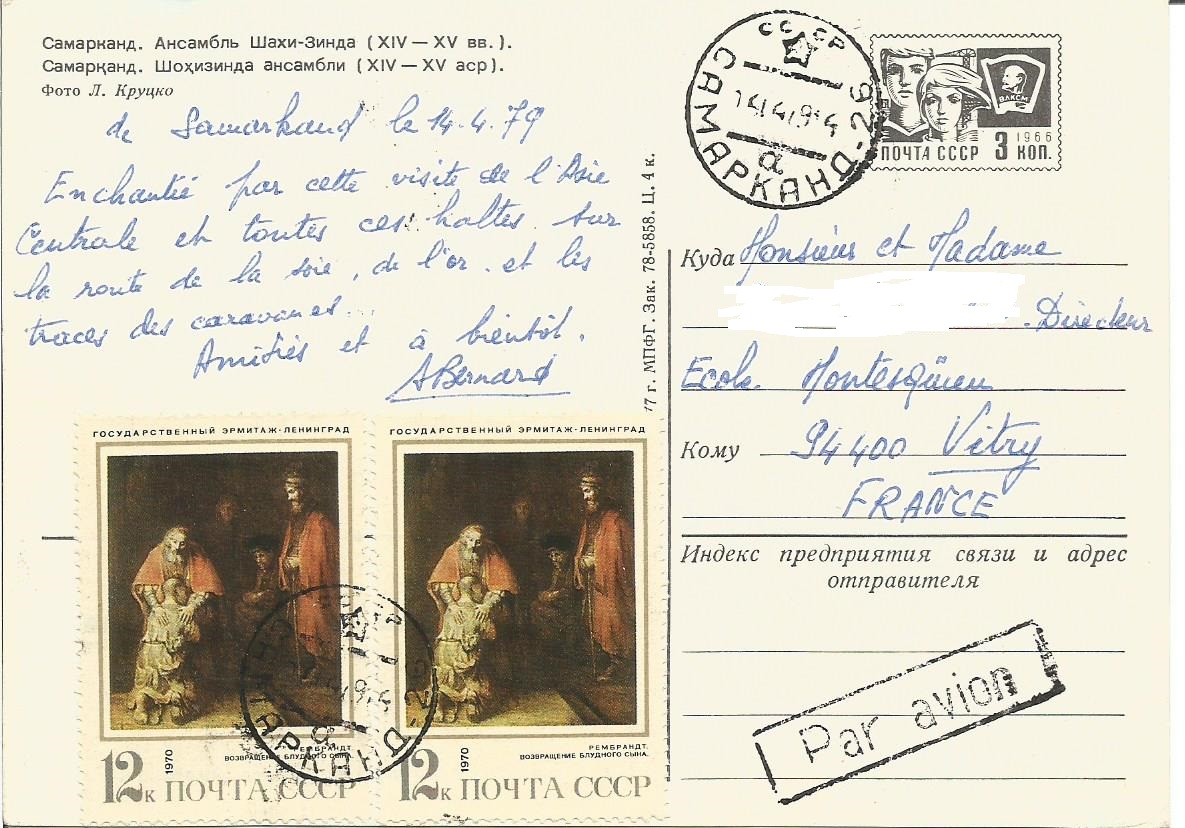 Самарканд. Ансамбль Шахи-Зинда (XIV — XV вв.).
Самарқанд. Шоҳизинда ансамбли (XIV — XV аср).
Фото Л. Круцко
de Samarkand le 14.4.79
Enchantié par cette visite de l'Asie
Centrale et toutes ces haltes sur
la route de la soie, de l'or. et les
traces des caravanes...
Amitiés et à bientôt.
ABernard
7 г. МПФГ. Зак. 78-5858. Ц. 4 к.
СССР
САМАРКАНД-26
а
ВЛКСМ
1966
ПОЧТА СССР 3 КОП.
Куда Monsieur et Madame
Directeur
Ecole Montesquieu
Кому 94400 Vitry
FRANCE
Индекс предприятия связи и адрес
отправителя
Par avion
ГОСУДАРСТВЕННЫЙ ЭРМИТАЖ-ЛЕНИНГРАД
РЕМБРАНДТ.
ВОЗВРАЩЕНИЕ БЛУДНОГО СЫНА.
1970
12к ПОЧТА СССР
ГОСУДАРСТВЕННЫЙ ЭРМИТАЖ-ЛЕНИНГРАД
РЕМБРАНДТ.
ВОЗВРАЩЕНИЕ БЛУДНОГО СЫНА.
1970
12к ПОЧТА СССР